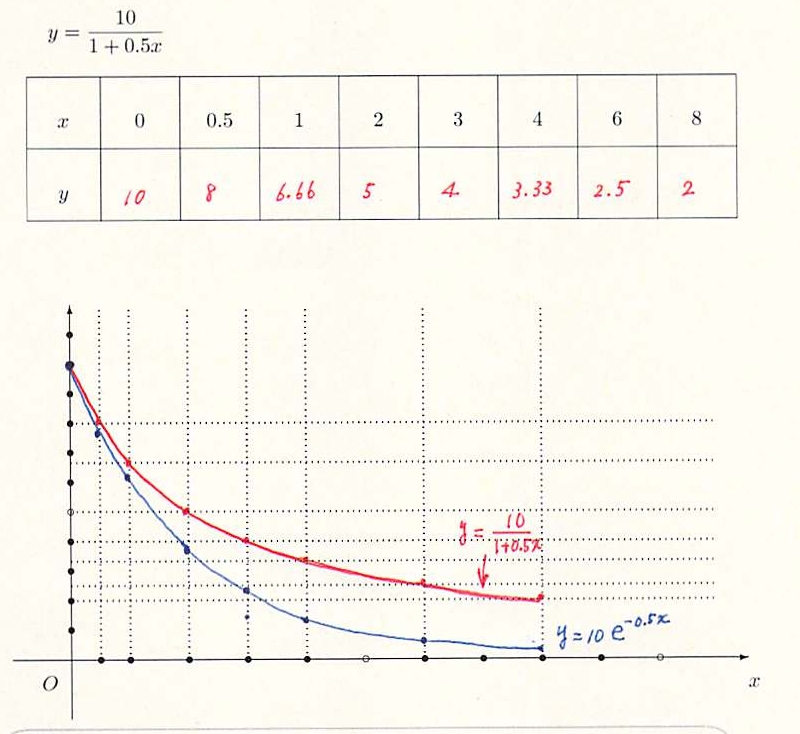 y = 10 / (1 + 0.5x)
x 0 0.5 1 2 3 4 6 8
y 10 8 6.66 5 4 3.33 2.5 2
y = 10 / (1+0.5x)
y = 10 e^-0.5x
O x